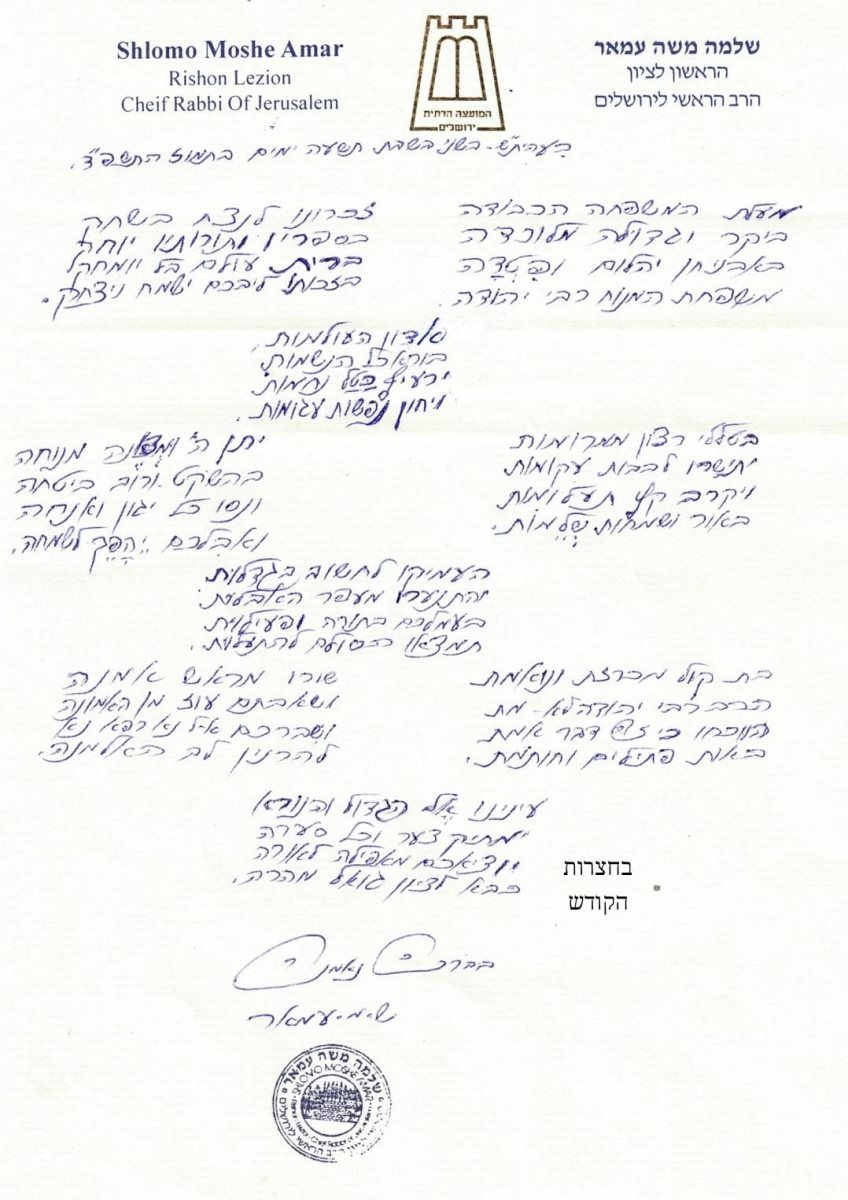 Shlomo Moshe Amar
Rishon Lezion
Cheif Rabbi Of Jerusalem
המועצה הדתית
ירושלים
שלמה משה עמאר
הראשון לציון
הרב הראשי לירושלים
בשני בשבת תשעה ימים בתמוז התשפ"ד.
מעלת המשפחה הכבודה
ביקר וגדולה מלוכדה
באבניחן יהלום ופטדה
משפחת המנוח רבי יהודה.
זכרונו לנצח בשחק
בספריו ותורותיו יוחק
ברית עולם בל יומחק
בזכותו ליבכם ישמח ניצחק.
אדון העולמות,
בורא כל הנשמות,
ירעיף בטל נחמות
ויחון נפשות עגומות.
בטללי רצון ממרומות
יתישרו לבבות עקומות
ויקרב קץ תעלומות
באור ושמחות שלמות.
יתן ה' ומצאנה מנוחה
בהשקט ורוב ביטחה
ונסו כל יגון ואנחה
ואבלכם יהפך לשמחה.
העמיקו לחשוב בגדלות
והתנערו מעפר האבלות
בעמלכם בתורה ופעילות
תמצאו הסולם להתעלות.
בת קול מכרזת ונואמת
הרב רבי יהודה לא-מת
הווכחו כי זהו דבר אמת
באות פתילים וחותמת.
שורו מראש אמנה
ושאבתם עוז מן האמונה
ושברכם אל נא רפא נא
להרנין לב האלמנה.
עינינו אל הגדול והנורא
ימתיק צער וכל סערה
יוציאכם מאפילה לאורה
בבא לציון גואל מהרה.
בחצרות
הקודש
בברכה נאמנה
ש.מ.עמאר
שלמה משה עמאר
SHLOMO MOSHE AMAR